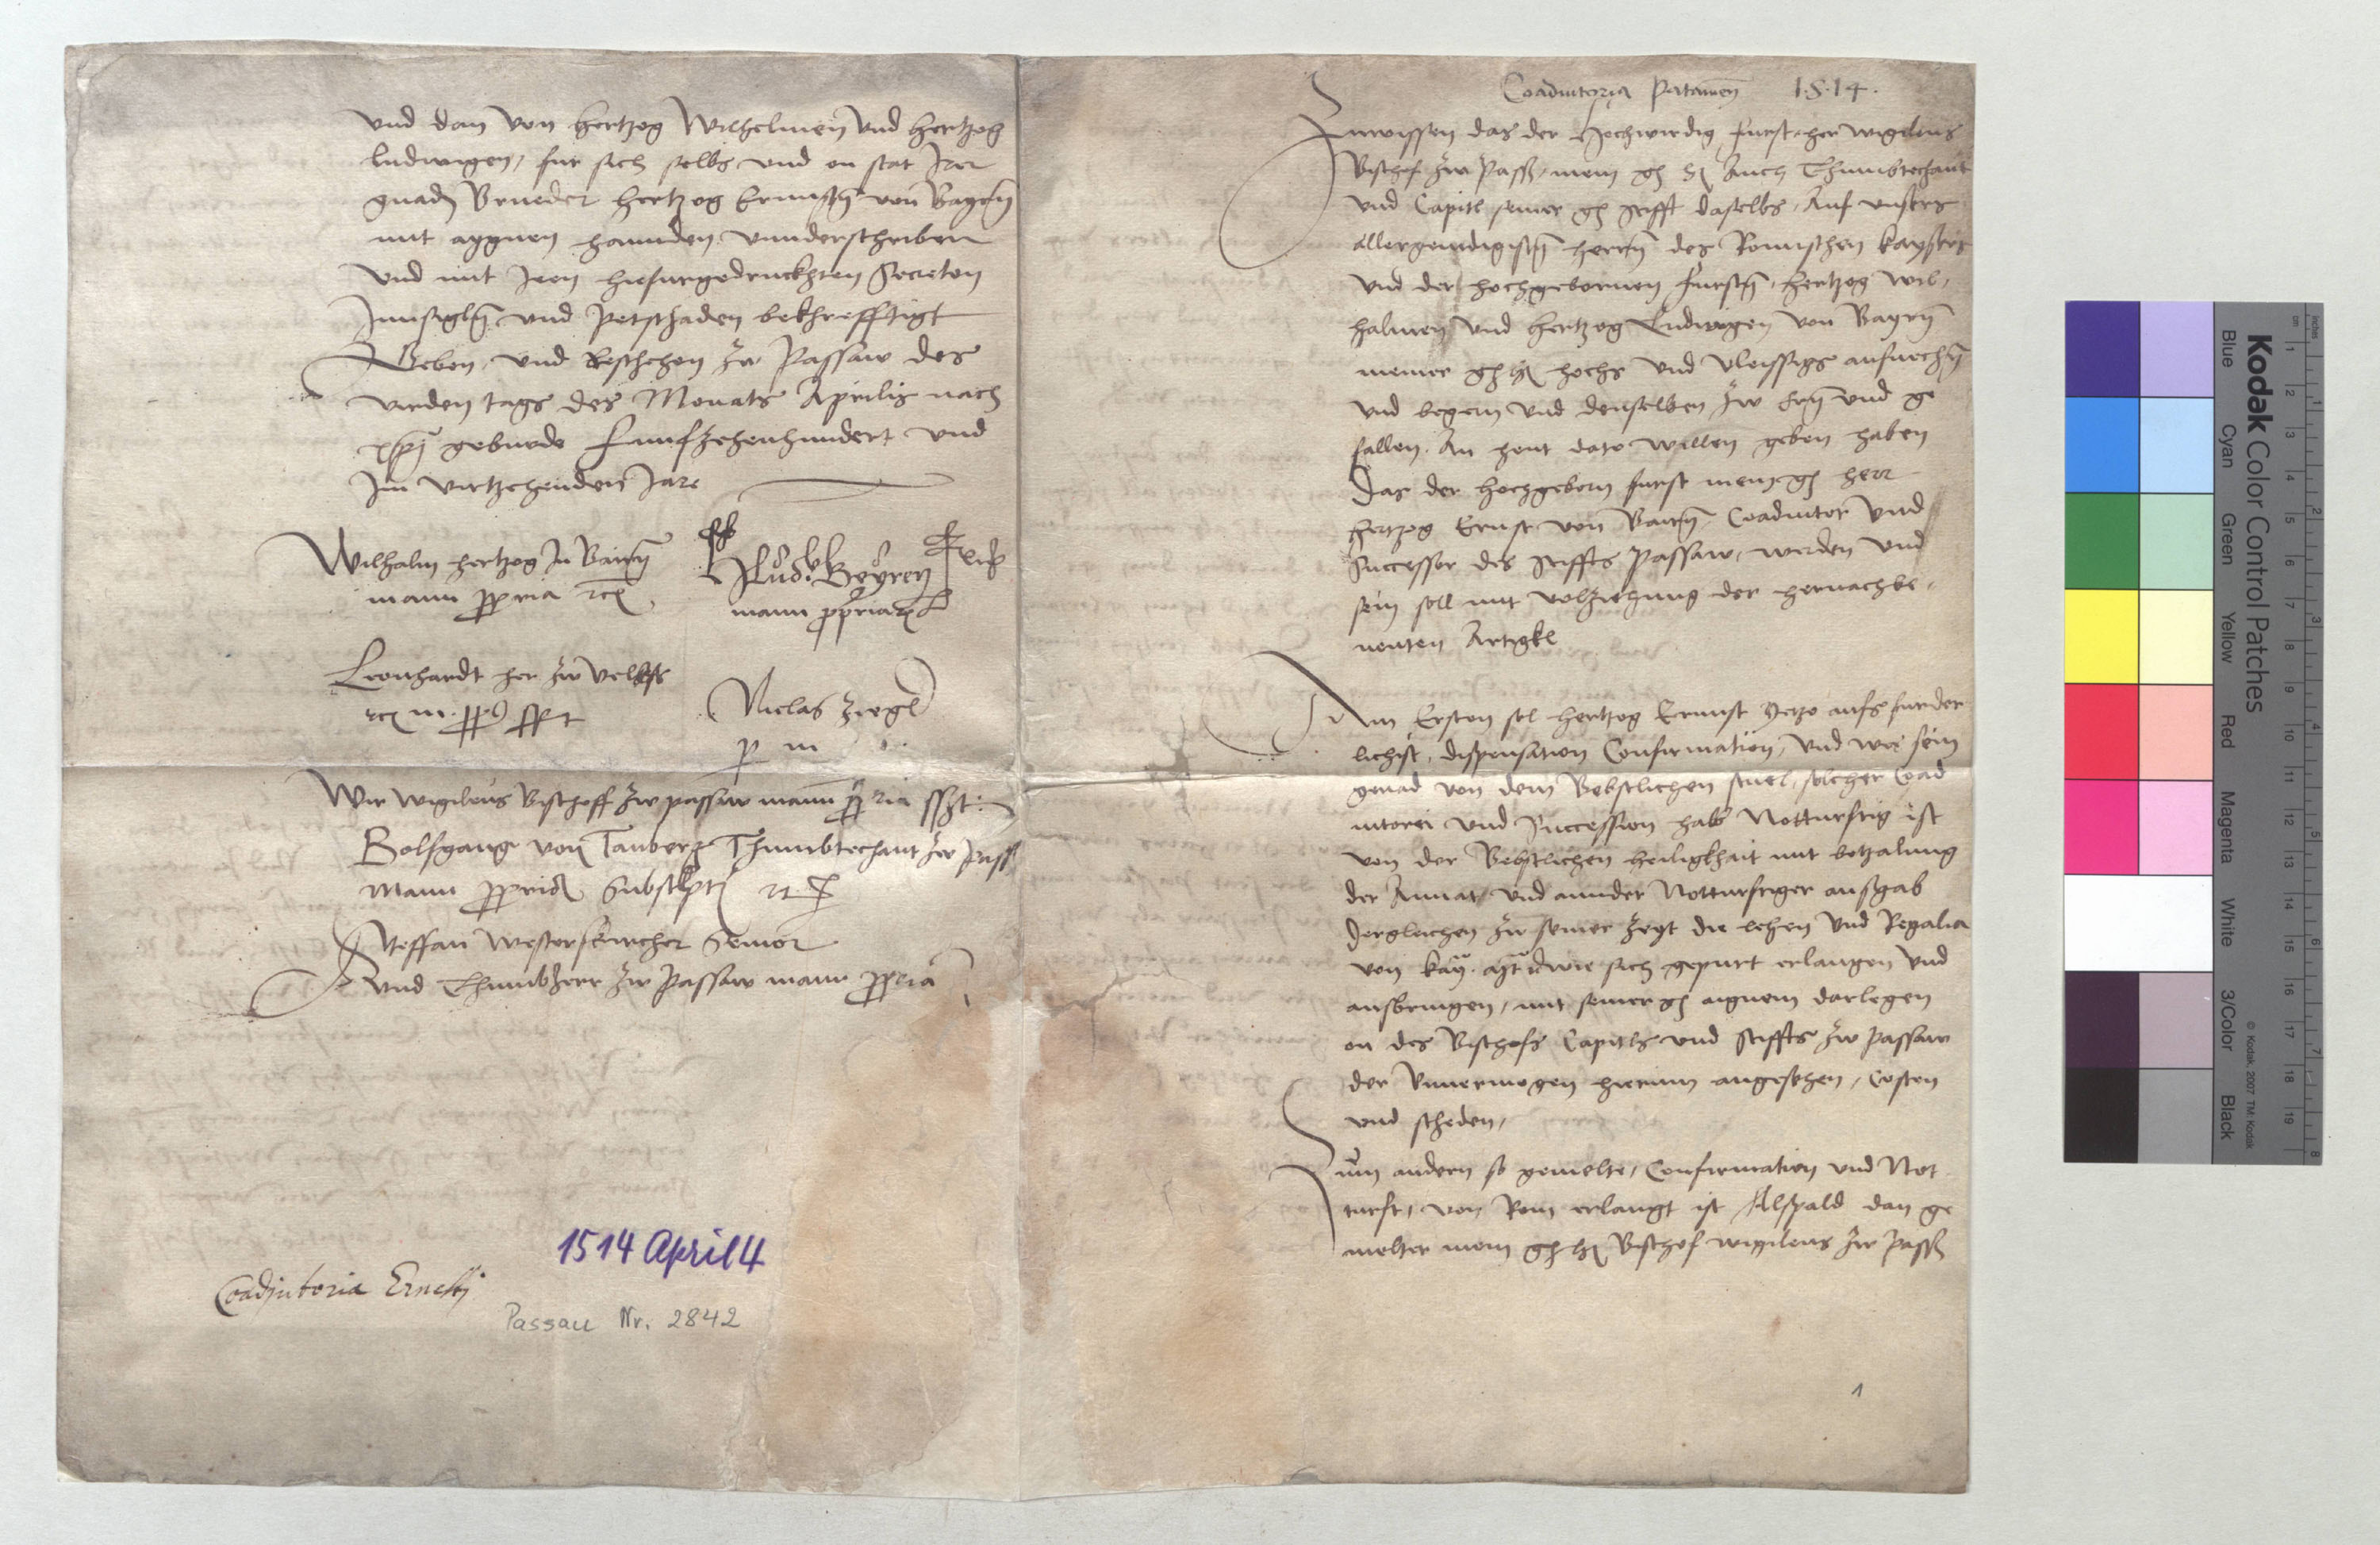 und dan von hertzog Wilhelmen und hertzog
ludwigen, fur sich selbs und on stat Irer
gnaden Brueder hertzog Ernnsten von Bayern
mit aygnen hannden unnderschriben
und mit Iren hiefurgedruckhten Secreten
Innsigln und petschaden bekhrefftigt
Geben und Beschehen zw Passaw des
virden tags des Monats Aprilis nach
xpi geburde Funfzehenhundert und
Im virtzehenden Jare
Wilhalm hertzog In Bairn
manu ppria
H Lud. v. Beyren
manu ppria
Leonhardt her zw vels
m. pp
Niclas Ziegler
p m
Wir Wigileus Bischoff zw passaw manu ppria sszt:
Bolfgang von Tanberg Thumbtechant zw pass
Manu ppria Subscripsit
Steffan Westerskircher Senior
und Thumbherr zw Passaw manu ppria
1514 April 4
Coadjutoria Ernesti
Passau Nr. 2842
Coadiutoria Patavien 1.5.14.
Zuwissen das der Hochwirdig furst her wigileus
Bischof zw Pass, mein gn h Auch Thumbtechant
und Capitl seiner gn Stifft daselbs, Auf unsers
allergenedigisten herrn des Romischen kaysers
und der hochgebornen Fursten, hertzog Wil,
halmen und hertzog Ludwigen von Bayrn
meiner gn hn hochs und vleissigs ansuechen
und begern und denselben zw Ern und ge
fallen. An heut dato willen geben haben
Das der hochgeborn furst mein gn herr
hertzog Ernst von Bairn Coadiutor und
Successor des Stiffts Passaw, werden und
sein soll mit volziehung der hernachbe,
nenten Artigkl
Am Ersten sol hertzog Ernnst Yetzo aufs furder
lichist, dispensation Confirmation, und wes sein
genad von dem Bebstlichen stuel, solcher Coad
iutorei und Succession halb Notturftig ist
von der Bebstlichen heiligkhait mit betzalung
der Annat, und annder Notturftiger außgab
Dergleichen zu seiner zeyt die lehen und Regalia
von kay. Mt. wie sich gepurt erlangen und
ausbringen, mit seiner gn aignem darlegen
on des Bischofs Capitls und Stiffts zw Passaw
der Unvermogen hierinn angesehen, Costen
und scheden,
Zum andern so gemelte, Confirmation und Not
turft, von Rom erlangt ist Alspald dan ge
melter mein gn hn Bischof wigileus zw Pass
1
Kodak Color Control Patches
Blue
Cyan
Green
Yellow
Red
Magenta
White
3/Color
Black
© Kodak 2007 TM: Kodak
inches
cm
1 2 3 4 5 6 7 8 9 10 11 12 13 14 15 16 17 18 19
1 2 3 4 5 6 7 8